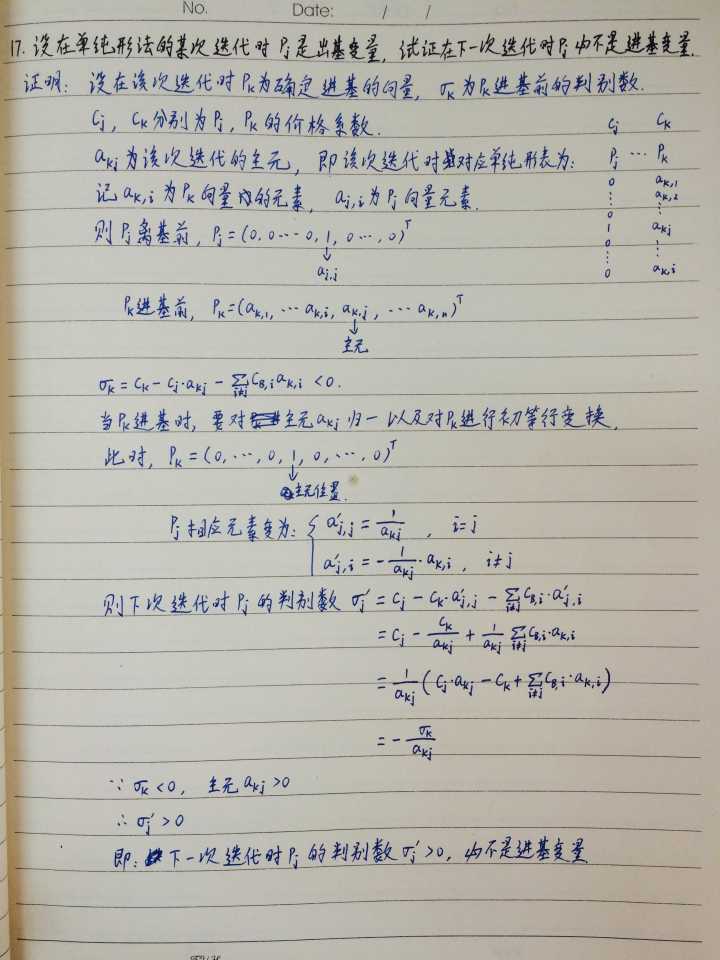 No. Date: / /
17. 设在单纯形法的某次迭代时 Pj 是出基变量, 试证在下一次迭代时Pj 必不是进基变量.
证明: 设在该次迭代时 Pk 为确定进基的向量, σk 为Pk进基前的判别数.
Cj, Ck 分别为 Pj, Pk 的价格系数.
akj 为该次迭代的主元, 即该次迭代时对应单纯形表为:
记 ak,i 为 Pk 向量内的元素, aj,i 为 Pj 向量元素.
则 Pj 离基前, Pj = (0, 0 ⋯ 0, 1, 0 ⋯, 0)ᵀ
↓
aj,j
Cj Ck
Pj ⋯ Pk
0 ak,1
⋮ ak,2
0 ⋮
1 akj
0 ⋮
⋮
0 ak,i
Pk进基前, Pk = (ak,1, ⋯ ak,i, ak,j, ⋯ ak,n)ᵀ
↓
主元
σk = Ck − Cj·akj − ∑i≠j CB,i ak,i < 0.
当Pk进基时, 要对主元 akj 归一以及对Pk进行初等行变换.
此时, Pk = (0, ⋯, 0, 1, 0, ⋯, 0)ᵀ
↓
主元位置.
Pj 相应元素变为: { a'j,j = 1/akj , i=j
a'j,i = − 1/akj · ak,i , i≠j
则下次迭代时 Pj 的判别数 σj' = Cj − Ck·a'j,j − ∑i≠j CB,i·a'j,i
= Cj − Ck/akj + 1/akj ∑i≠j CB,i·ak,i
= 1/akj (Cj·akj − Ck + ∑i≠j CB,i·ak,i)
= − σk/akj
∵ σk < 0, 主元 akj > 0
∴ σj' > 0
即: 下一次迭代时 Pj 的判别数 σj' > 0, 必不是进基变量